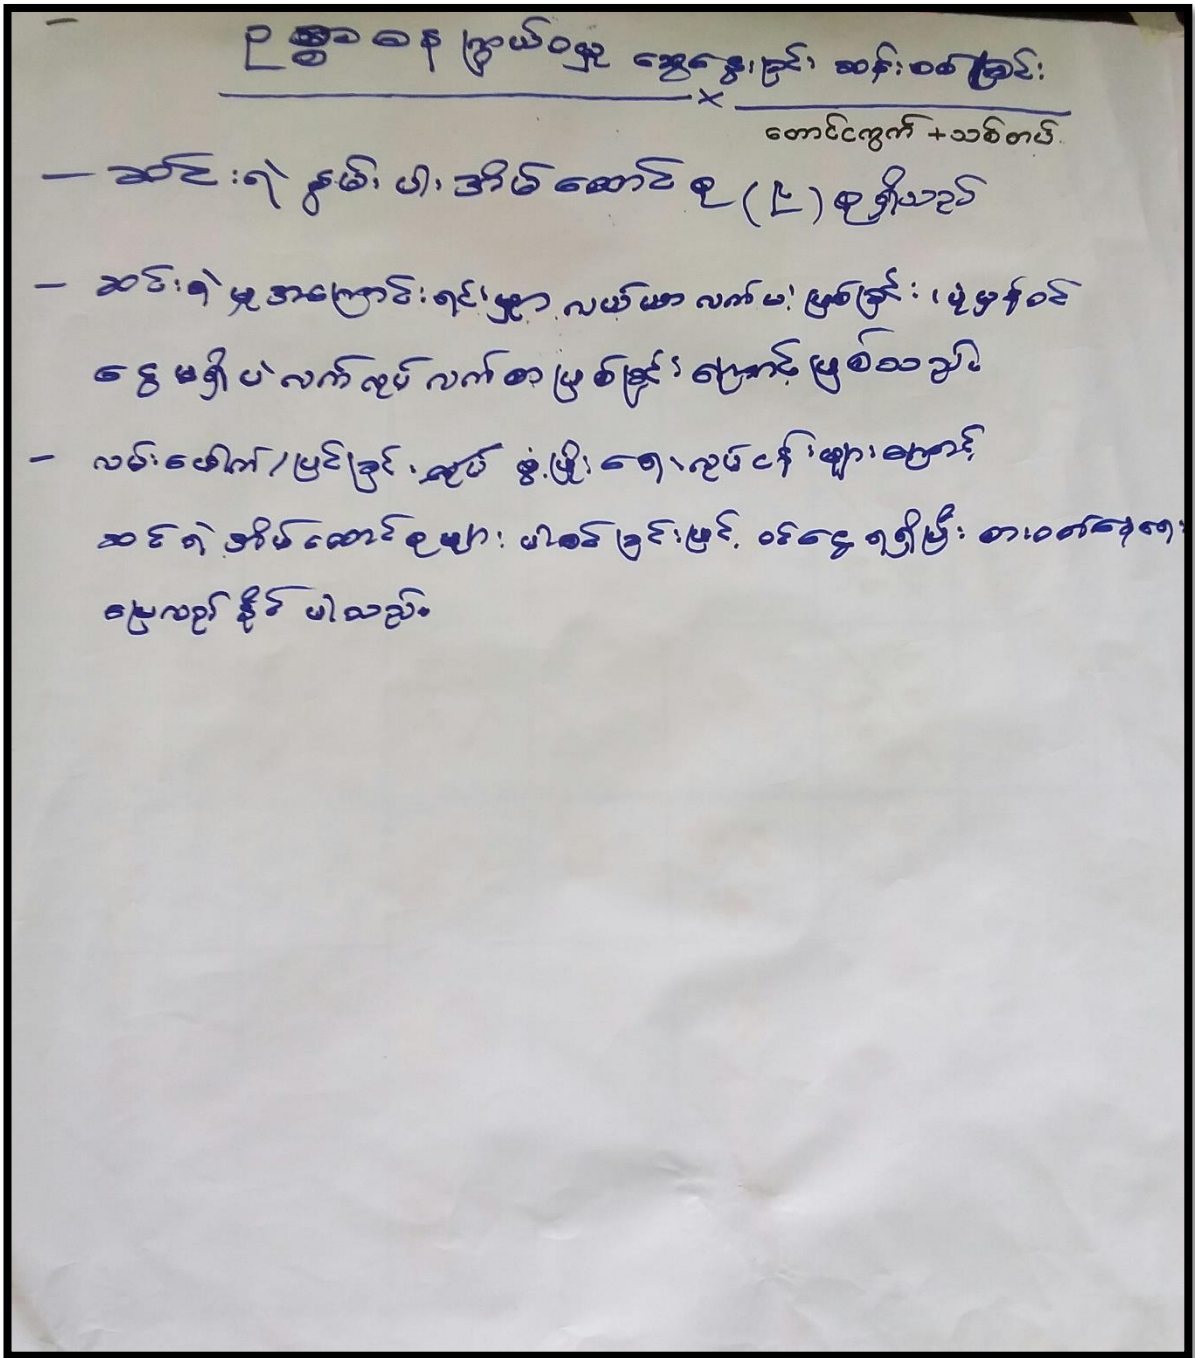 ဥစ္စာဓန ကြွယ်ဝမှု ဆွေးနွေးခြင်း ဆန်းစစ်ခြင်း
တောင်ငကွက် + သစ်တပ်
— ဆင်းရဲ နွမ်းပါး အိမ်ထောင်စု (၉) စု ရှိသည်
— ဆင်းရဲမှု အကြောင်းရင်းမှာ လယ်ယာလက်မဲ့ ဖြစ်ခြင်း ၊ ပုံမှန်ဝင်
ငွေ မရှိပဲ လက်လုပ်လက်စား ဖြစ်ခြင်းကြောင့် ဖြစ်သည်။
— လမ်းဖေါက် / ပြင်ခြင်း ဖွံ့ဖြိုးရေး လုပ်ငန်းများကြောင့်
ဆင်းရဲ အိမ်ထောင်စုများ ပါဝင်ခြင်းဖြင့် ဝင်ငွေ ရရှိပြီး စားဝတ်နေရေး
ပြေလည်နိုင် ပါသည်။